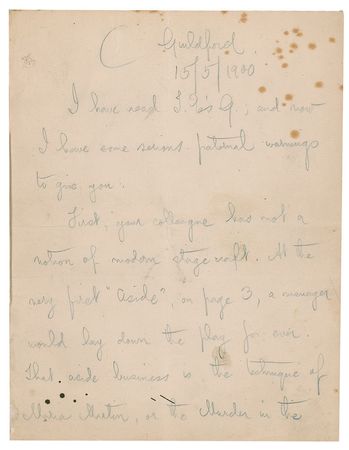 Guildford.
15/5/1900
I have read T. G's G., and now
I have some serious paternal warnings
to give you.
First, your colleague has not a
notion of modern stagecraft. At the
very first "aside", on page 3, a manager
would lay down the play for ever.
That aside business is the technique of
Maria Martin, or the Murder in the